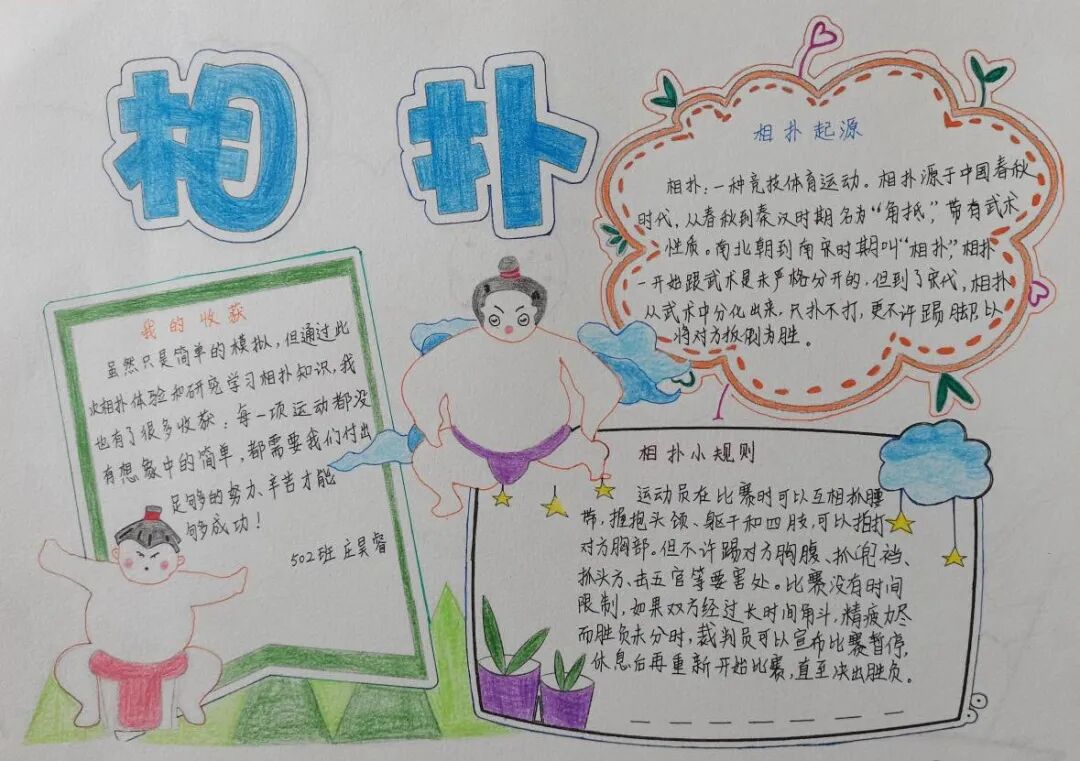 相扑
相扑起源
相扑:一种竞技体育运动。相扑源于中国春秋
时代,从春秋到秦汉时期名为“角抵”,带有武术
性质。南北朝到南宋时期叫“相扑”,相扑
一开始跟武术是未严格分开的,但到了宋代,相扑
从武术中分化出来,只扑不打,更不许踢脚以
将对方扳倒为胜。
我的收获
虽然只是简单的模拟,但通过此
次相扑体验和研究学习相扑知识,我
也有了很多收获:每一项运动都没
有想象中的简单,都需要我们付出
足够的努力、辛苦才能
够成功!
502班 庄昊睿
相扑小规则
运动员在比赛时可以互相抓腰
带,握抱头颈、躯干和四肢,可以拍打
对方胸部。但不许踢对方胸腹、抓兜裆、
抓头方、击五官等要害处。比赛没有时间
限制,如果双方经过长时间角斗,精疲力尽
而胜负未分时,裁判员可以宣布比赛暂停,
休息后再重新开始比赛,直至决出胜负。